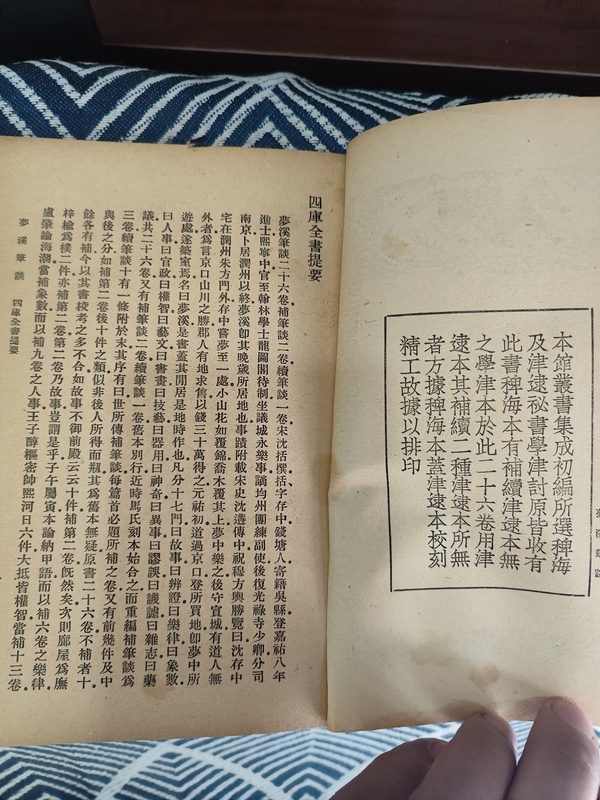 本館叢書集成初編所選稗海
及津逮祕書學津討原皆收有
此書稗海本有補續津逮本無
之學津本於此二十六卷用津
逮本其補續一種津逮本所無
者方據稗海本蓋津逮本校刻
精工故據以排印
四庫全書提要
夢溪筆談二十六卷補筆談二卷續筆談一卷宋沈括撰括字存中錢塘人寄籍吳縣登嘉祐八年
進士熙寧中官至翰林學士龍圖閣待制坐議城永樂事謫均州團練副使後復光祿寺少卿分司
南京卜居潤州以終夢溪卽其晚歲所居地也事蹟附載宋史沈遘傳中祝穆方輿勝覽曰沈存中
宅在潤州朱方門外存中嘗夢至一處小山花如覆錦喬木覆其上夢中樂之後守宣城有道人無
外者爲言京口山川之勝郡人有地求售以錢三十萬得之元祐初道過京口登所買地卽夢中所
遊處遂築室焉名曰夢溪是書蓋其閒居是地時作也凡分十七門曰故事曰辨證曰樂律曰象數
曰人事曰官政曰權智曰藝文曰書畫曰技藝曰器用曰神奇曰異事曰謬誤曰譏謔曰雜志曰藥
議共二十六卷又有補筆談二卷續筆談一卷舊本別行近時馬氏刻本始合之而重編補筆談爲
三卷續筆談十有一條附於末其序有曰世所傳補筆談每篇首必題所補之卷又有前幾件及中
與後之分如補第二卷後十件之類似非後人所得而刱其爲舊本無疑原書二十六卷不補者十
餘各有補今以其書校考之多不合如故事不御前殿云云十件補第二卷旣然矣次則廊屋爲廡
梓楡爲樸二件亦補第二卷第二卷乃故事豈謂是乎子午屬寅本論納甲語而以補六卷之樂律
盧肇論海潮當補象數而以補九卷之人事王子醇樞密帥熙河日六件大抵皆權智當補十三卷
夢溪筆談 四庫全書提要